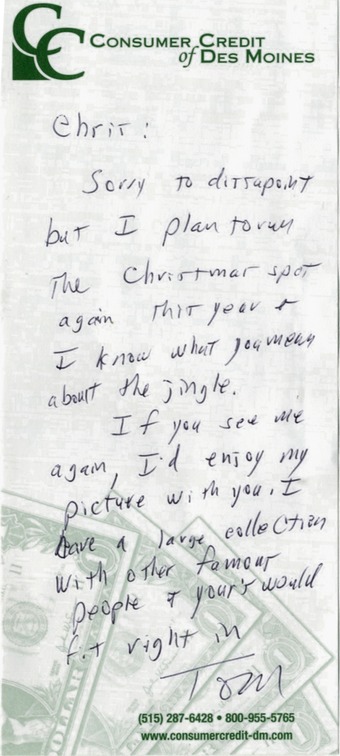 CC CONSUMER CREDIT
of DES MOINES
Chris:
Sorry to dissapoint
but I plan to run
the Christmas spot
again this year &
I know what you mean
about the jingle.
If you see me
again, I'd enjoy my
picture with you. I
have a large collection
with other famous
people & your's would
fit right in
Tom
(515) 287-6428 • 800-955-5765
www.consumercredit-dm.com